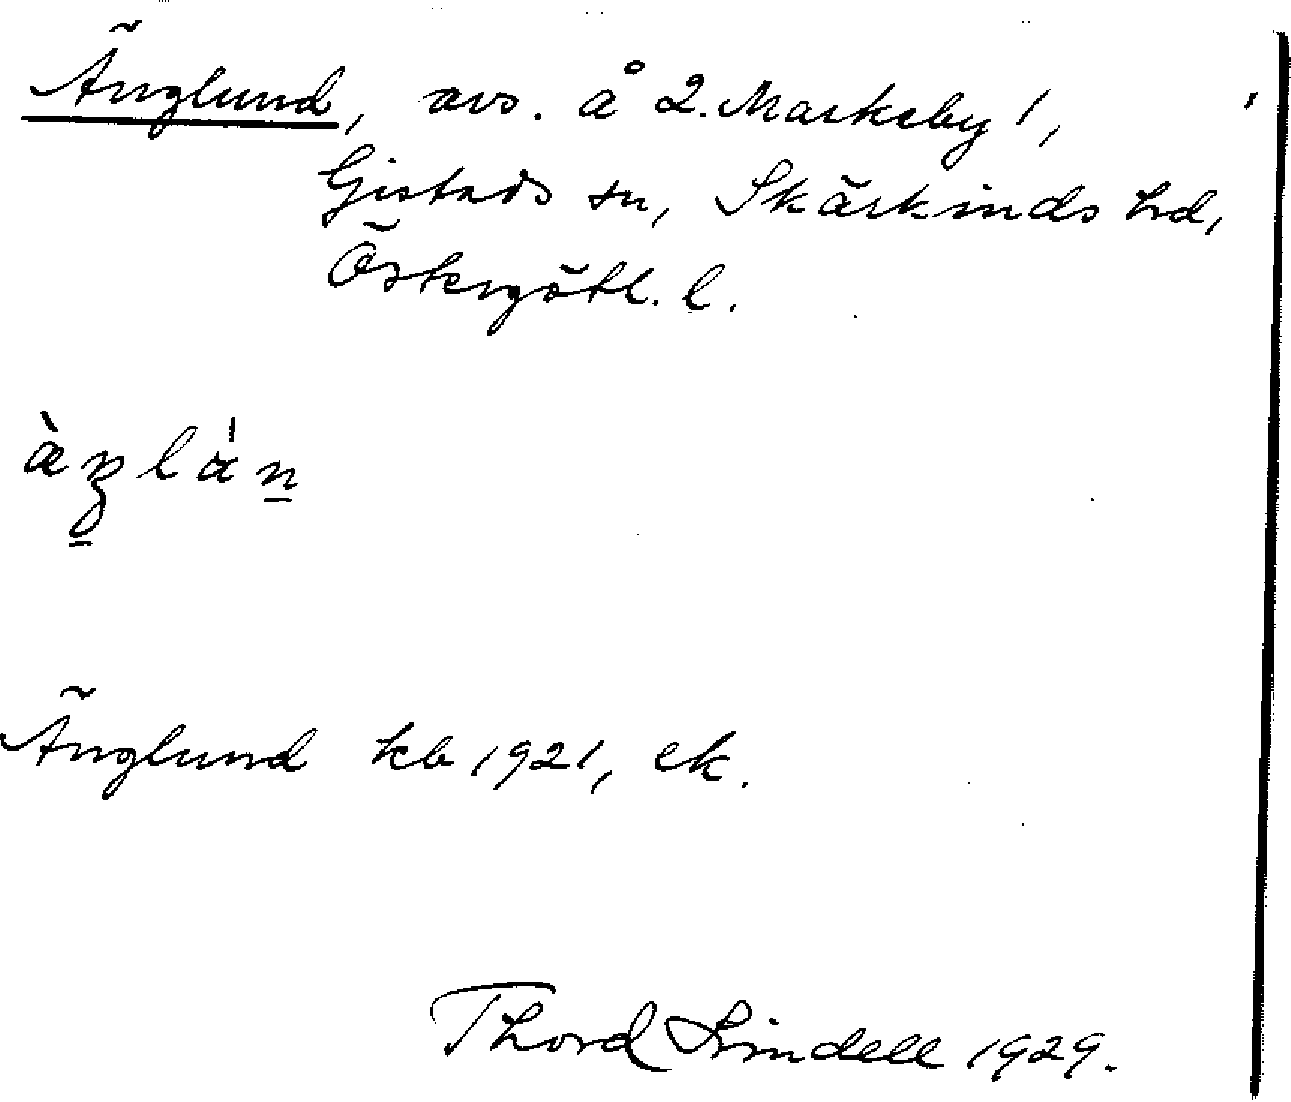 Änglund, avs. å 2. Markeby 1,
Gistads sn, Skärkinds hd,
Östergötl. l.
Änglund kb 1921, ek.
Thord Lindell 1929.